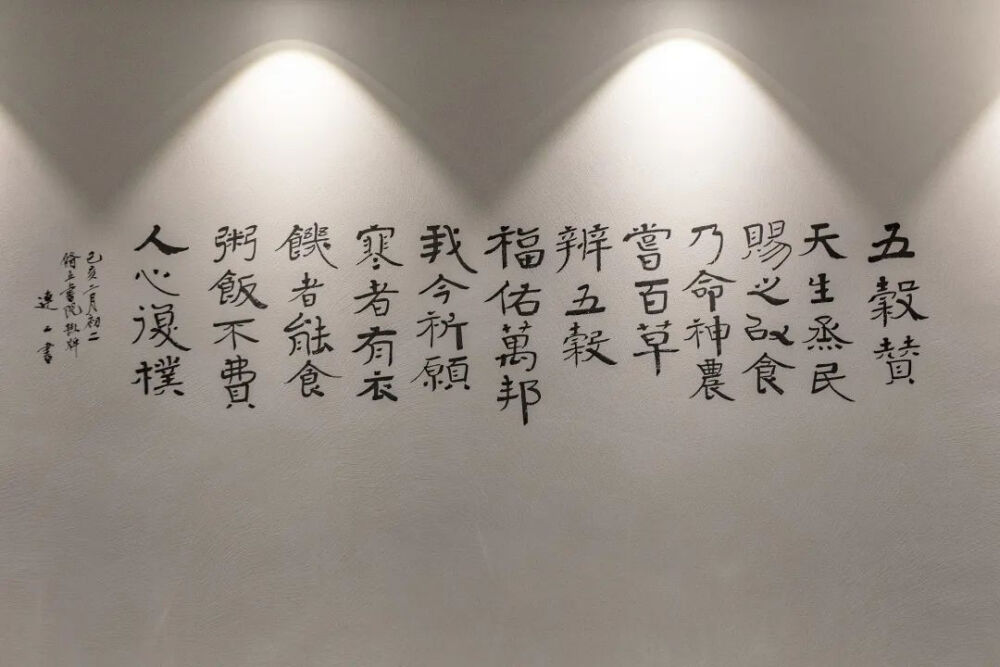 五穀贊
天生烝民
賜之以食
乃命神農
嘗百草
辨五穀
福佑萬邦
我今祈願
寒者有衣
饑者能食
粥飯不費
人心復樸
己亥二月初二
脩立書院
書